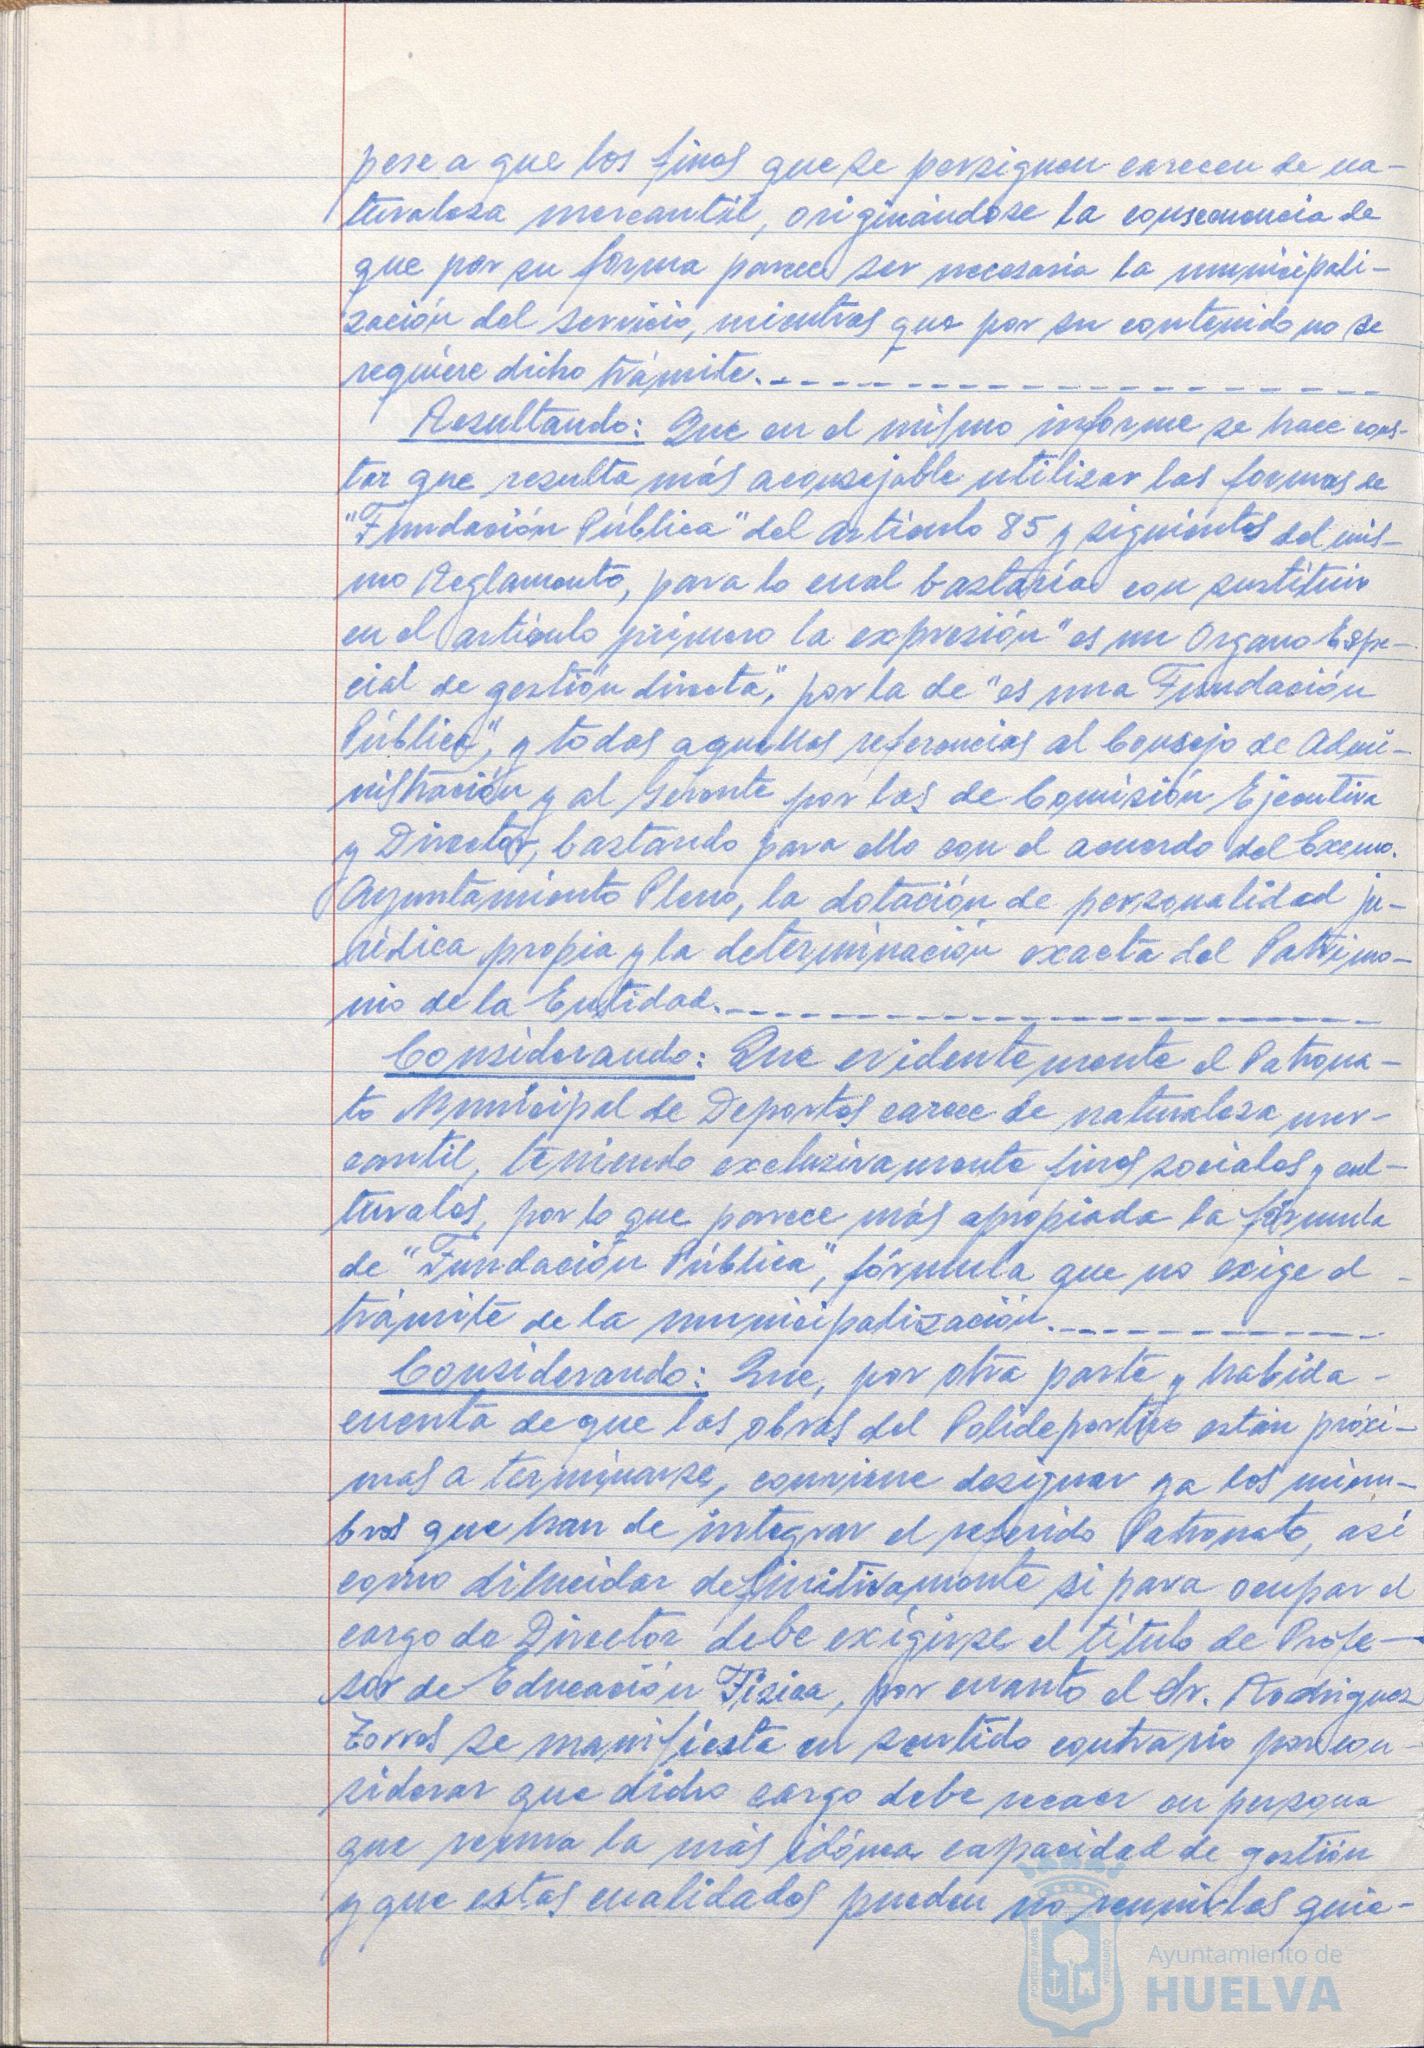 pese a que los fines que se persiguen carecen de na-
turaleza mercantil, originándose la consecuencia de
que por su forma parece ser necesaria la municipali-
zación del servicio, mientras que por su contenido no se
requiere dicho trámite.
Resultando: Que en el mismo informe se hace cons-
tar que resulta más aconsejable utilizar las formas de
"Fundación Pública" del artículo 85 y siguientes del mis-
mo Reglamento, para lo cual bastaría con sustituir
en el artículo primero la expresión "es un Organo Espe-
cial de gestión directa", por la de "es una Fundación
Pública", y todas aquellas referencias al Consejo de Admi-
nistración y al Gerente por las de Comisión Ejecutiva
y Director, bastando para ello con el acuerdo del Excmo.
Ayuntamiento Pleno, la dotación de personalidad ju-
rídica propia y la determinación exacta del Patrimo-
nio de la Entidad.
Considerando: Que evidentemente el Patrona-
to Municipal de Deportes carece de naturaleza mer-
cantil, teniendo exclusivamente fines sociales y cul-
turales, por lo que parece más apropiada la fórmula
de "Fundación Pública", fórmula que no exige el
trámite de la municipalización.
Considerando: Que, por otra parte y habida
cuenta de que las obras del Polideportivo están próxi-
mas a terminarse, conviene designar ya los miem-
bros que han de integrar el referido Patronato, así
como dilucidar definitivamente si para ocupar el
cargo de Director debe exigirse el título de Profe-
sor de Educación Física, por cuanto el Sr. Rodríguez
Torres se manifiesta en sentido contrario por con-
siderar que dicho cargo debe recaer en persona
que reuna la más idónea capacidad de gestión
y que estas cualidades pueden no reunirlas quie-
Ayuntamiento de
HUELVA